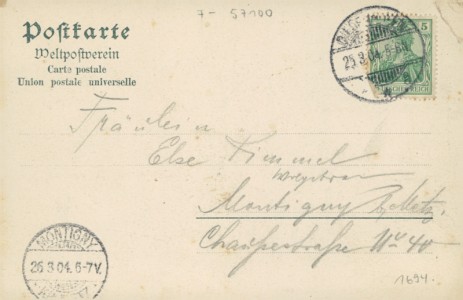 7 - 57100
Postkarte
Weltpostverein
Carte postale
Union postale universelle
5
25 3.04. 6-
Fräulein
Else Kimmel
Montigny b. Metz
Chausseestraße No 40
MONTIGNY
26 3 04. 6-7V.
1694.